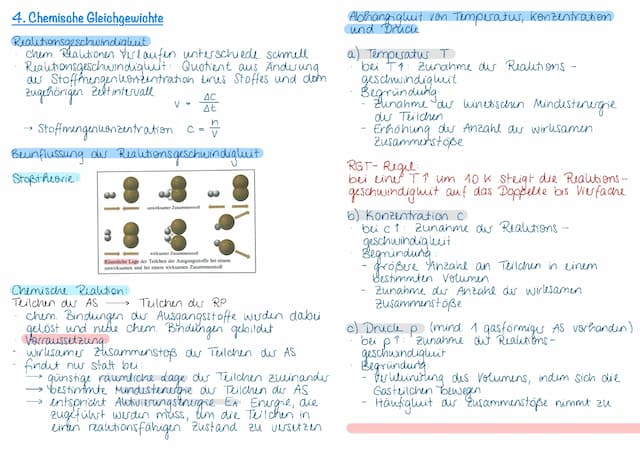 4. Chemische Gleichgewichte
Reaktionsgeschwindigkeit
chem Reaktionen verlaufen unterschiede schnell
· Reaktionsgeschwindigkeit: Quotient aus Änderung
der Stoffmengenkonzentration eines Stoffes und dem
zugehörigen Zeitintervall
v = Δc/Δt
→ Stoffmengenkonzentration c = n/V
Beeinflussung der Reaktionsgeschwindigkeit
Stoßtheorie
unwirksamer Zusammenstoß
wirksamer Zusammenstoß
Räumliche Lage der Teilchen der Ausgangsstoffe bei einem
unwirksamen und bei einem wirksamen Zusammenstoß
Chemische Reaktion:
Teilchen der AS → Teilchen der RP
· chem. Bindungen der Ausgangsstoffe werden dabei
gelöst und neue chem. Bindungen gebildet
Vorraussetzung
- wirksamer Zusammenstoß der Teilchen der AS
· findet nur statt bei:
→ günstige räumliche Lage der Teilchen zueinander
→ bestimmte Mindestenergie der Teilchen der AS
→ entspricht Aktivierungsenergie EA Energie, die
zugeführt werden muss, um die Teilchen in
einen reaktionsfähigen Zustand zu versetzen
Abhängigkeit von Temperatur, Konzentration
und Druck
a) Temperatur T
· bei T↑: Zunahme der Reaktions-
geschwindigkeit
· Begründung:
- Zunahme der kinetischen Mindestenergie
der Teilchen
- Erhöhung der Anzahl der wirksamen
Zusammenstöße
RGT-Regel:
bei einer T↑ um 10 K steigt die Reaktions-
geschwindigkeit auf das Doppelte bis Vierfache
b) Konzentration c
· bei c↑: Zunahme der Reaktions-
geschwindigkeit
· Begründung:
- größere Anzahl an Teilchen in einem
bestimmten Volumen
- Zunahme der Anzahl der wirksamen
Zusammenstöße
c) Druck p (mind. 1 gasförmiger AS vorhanden)
· bei p↑: Zunahme der Reaktions-
geschwindigkeit
· Begründung:
- Verkleinerung des Volumens, indem sich die
Gasteilchen bewegen
- Häufigkeit der Zusammenstöße nimmt zu